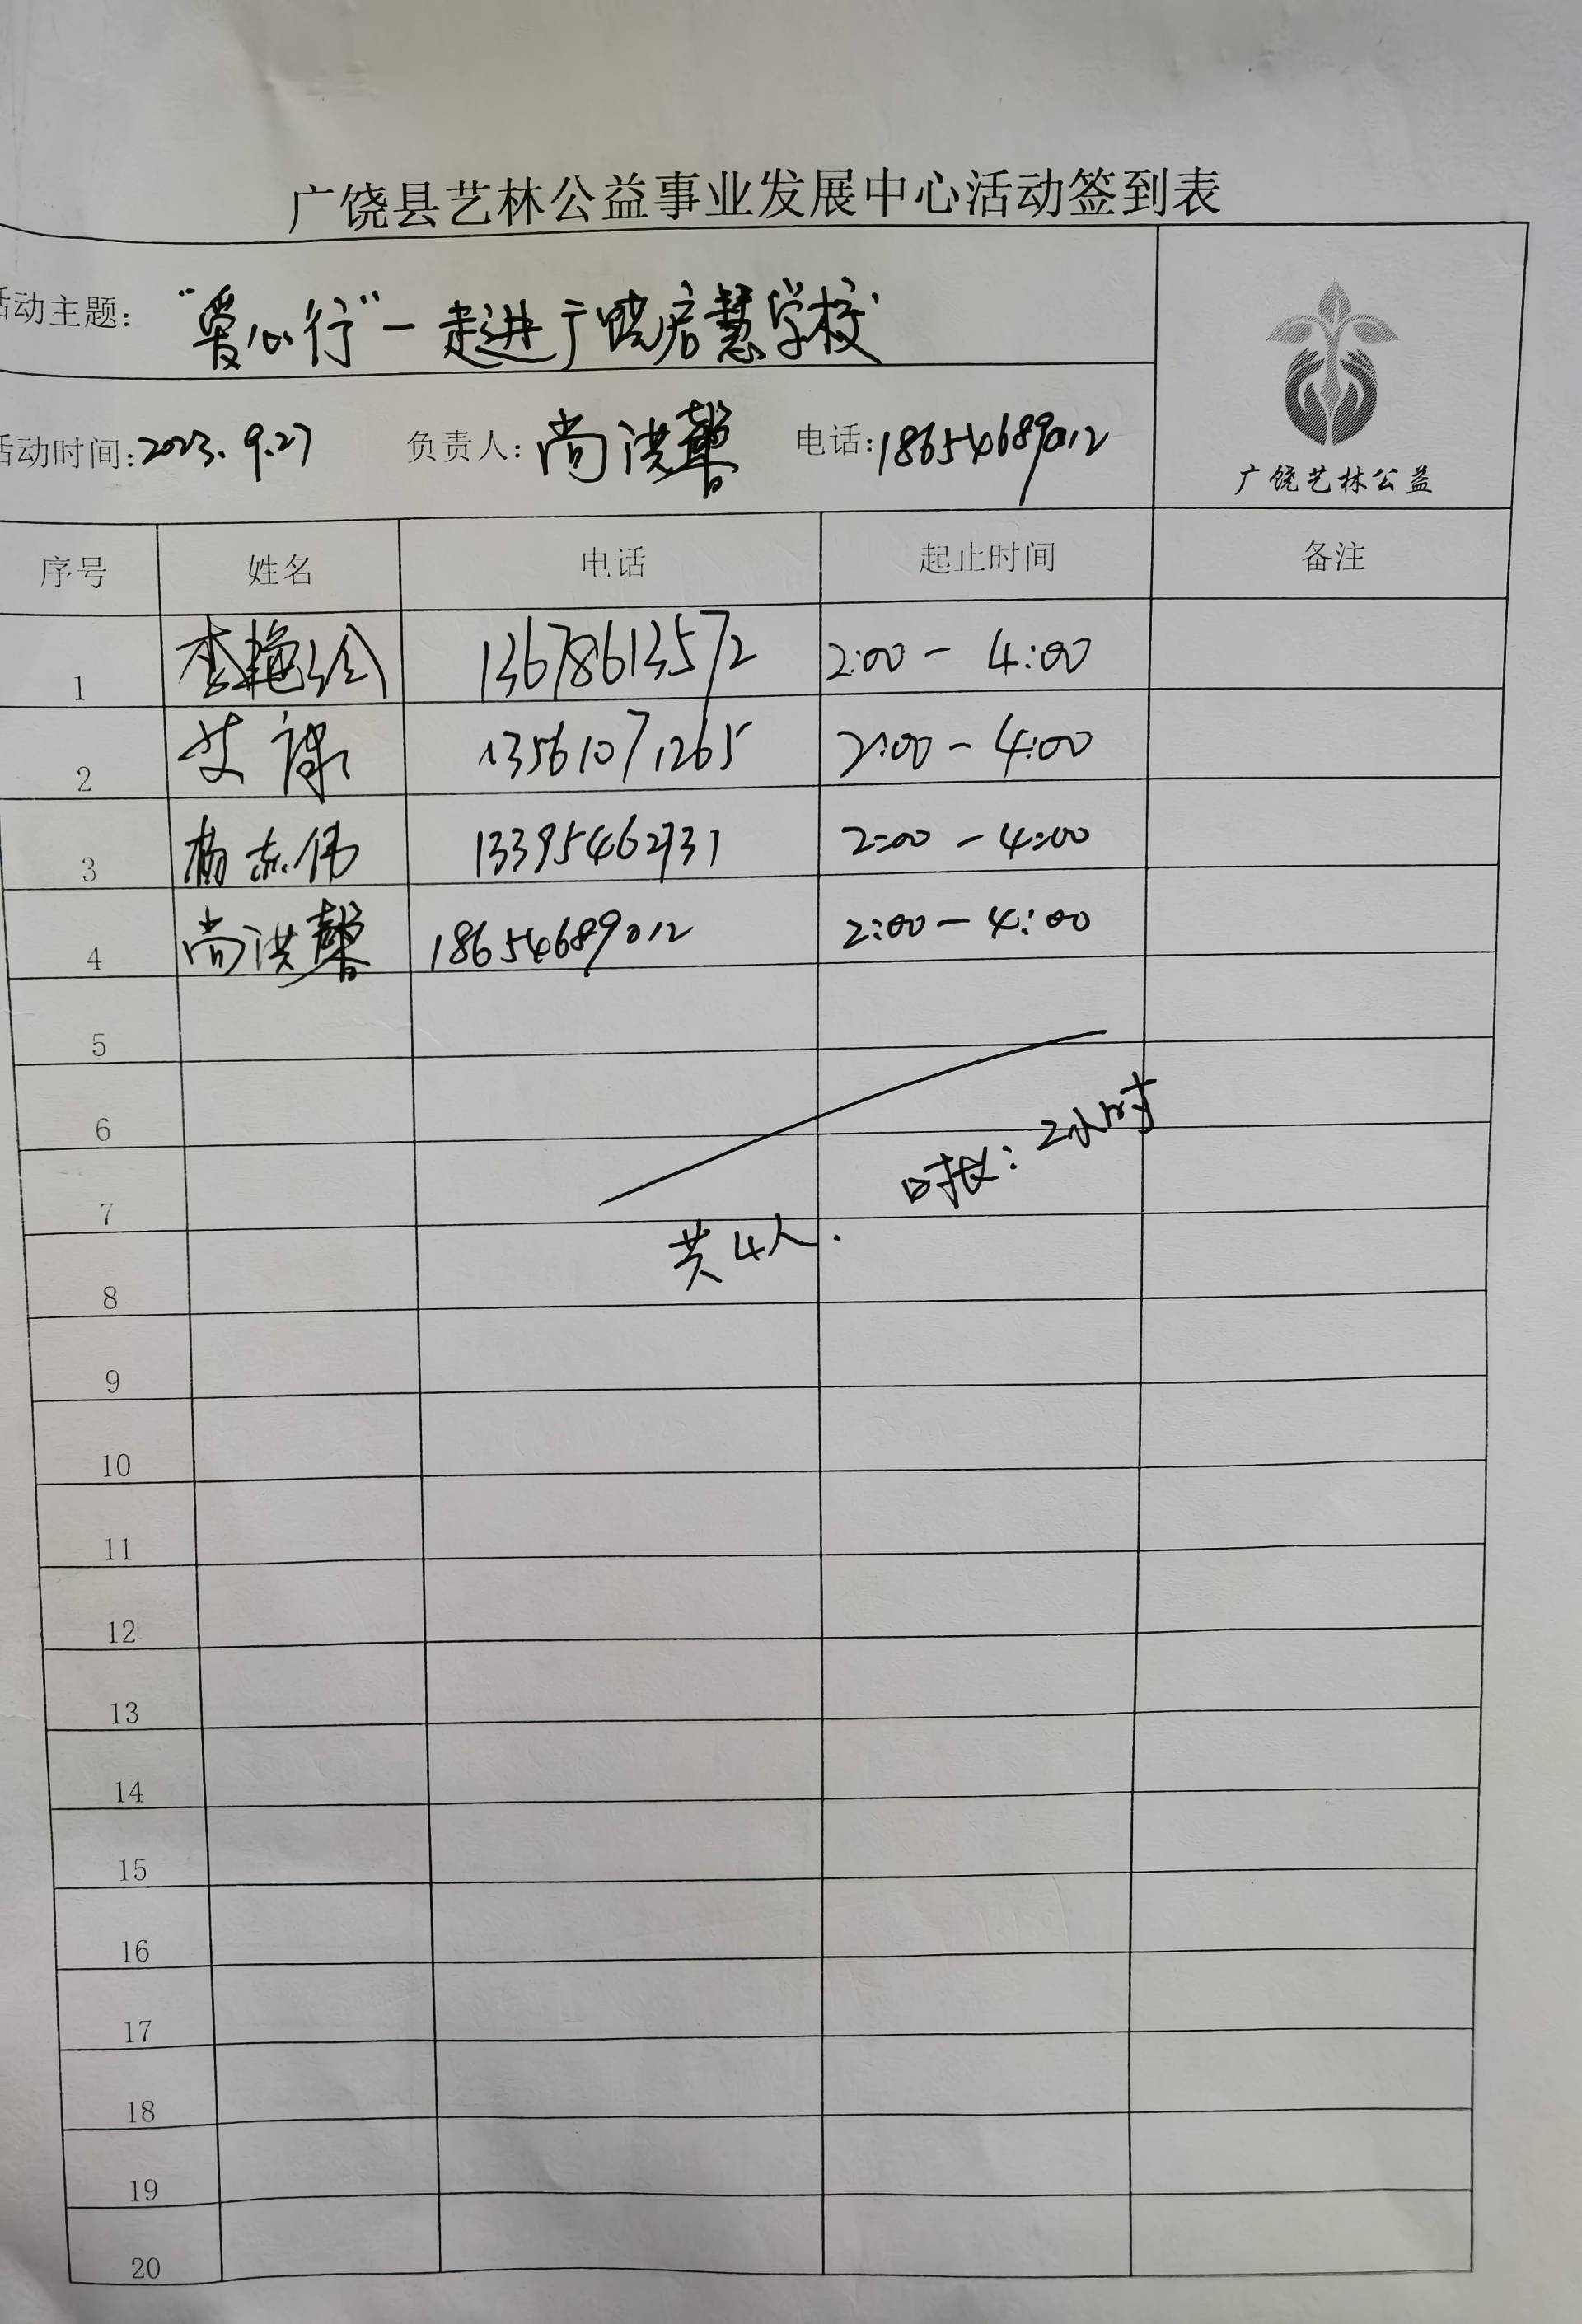 广饶县艺林公益事业发展中心活动签到表
活动主题: "爱心行"一走进广饶启慧学校
活动时间: 2023.9.27 负责人: 尚洪馨 电话: 18654689012
广饶艺林公益
序号 姓名 电话 起止时间 备注
1 李艳玲 13678613572 2:00 - 4:00
2 艾 13561071265 2:00 - 4:00
3 杨志伟 13395462731 2:00 - 4:00
4 尚洪馨 18654689012 2:00 - 4:00
5
6
时长: 2小时
7
共4人.
8
9
10
11
12
13
14
15
16
17
18
19
20